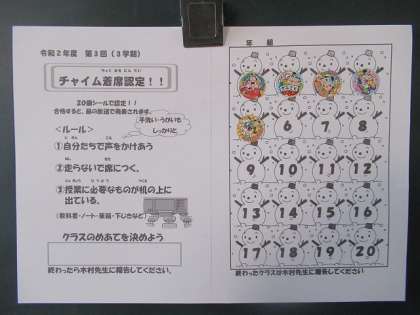 令和2年度 第3回（3学期）
チャイム着席認定！！
20個シールで認定！！
合格すると、昼の放送で発表されます。
手洗い・うがいも
しっかりと
＜ルール＞
①自分たちで声をかけあう
②走らないで席につく。
③授業に必要なものが机の上に
出ている。
（教科書・ノート・筆箱・下じきなど）
クラスのめあてを決めよう
終わったら木村先生に報告してください。
年 組
6 7 8
9 10 11 12
13 14 15 16
17 18 19 20
終わったクラスは木村先生に報告してください